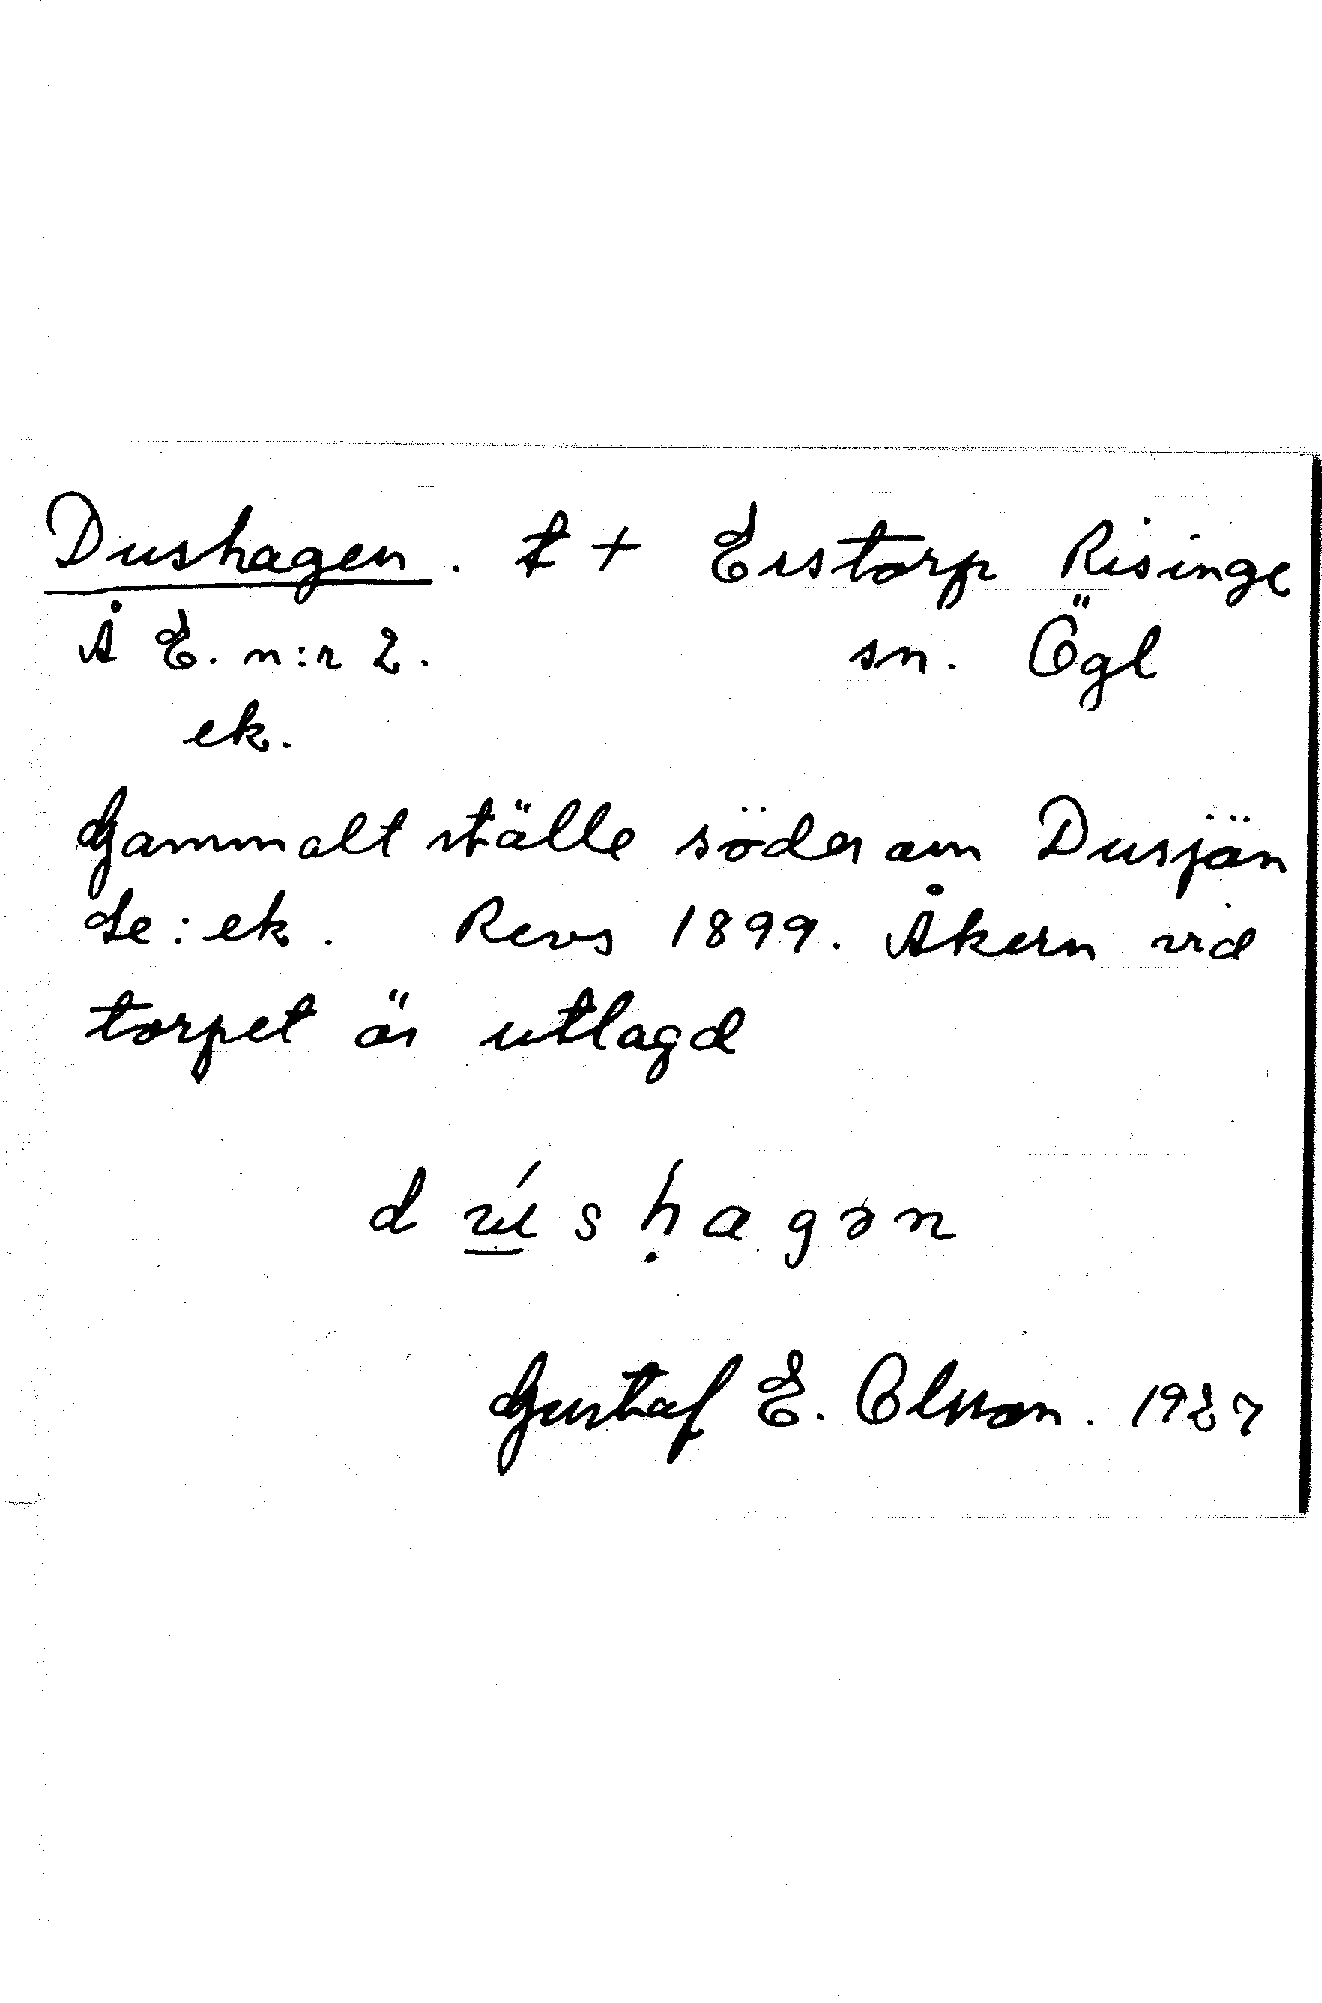 Dushagen. t + Erstorp Risinge
Å E. n:r 2. sn. Ögl
ek.
Gammalt ställe söder om Dusjön
Se: ek. Revs 1899. Åkern vid
torpet är utlagd
d ús ḥ a g ə n
Gustaf E. Olsson. 1927